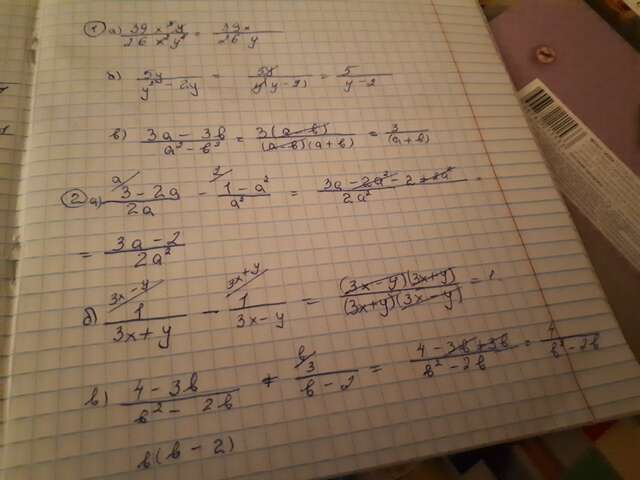 1 а) 39 x³y / 26 x²y² = 39x / 26 y
б) 5y / y² - 2y = 5y / y(y-2) = 5 / y-2
в) 3a - 3b / a² - b² = 3(a-b) / (a-b)(a+b) = 3 / (a+b)
2 а) a/ 3-2a / 2a - 2/ 1-a² / a² = 3a - 2a² - 2 + 2a² / 2a² =
= 3a - 2 / 2a²
б) 3x-y/ 1 / 3x+y - 3x+y/ 1 / 3x-y = (3x-y)(3x+y) / (3x+y)(3x-y) = 1
в) 4-3b / b² - 2b + b/ 3 / b-2 = 4-3b+3b / b²-2b = 4 / b²-2b
b(b-2)